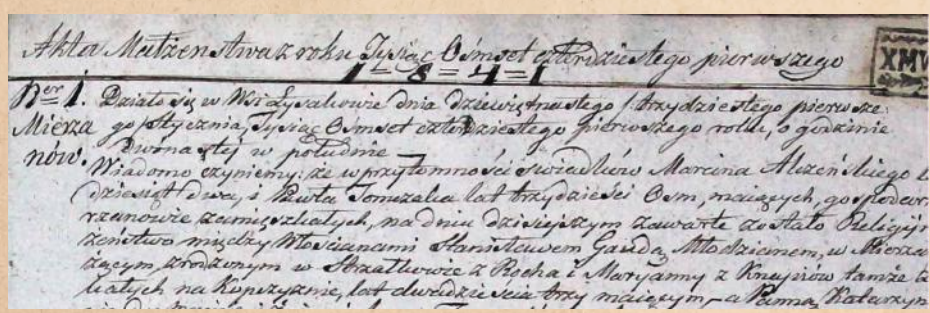 Akta Małżeństwa z roku Tysiąc Ośmset czterdziestego pierwszego
1=8=4=1
XMV
Ner 1. Działo się w Wsi Łysakowie dnia dziewiętnastego /:trzydziestego pierwsze:
Mierza go/ Stycznia, Tysiąc Ośmset czterdziestego pierwszego roku, o godzinie
nów. dwunastej w południe
Wiadomo czyniemy: że w przytomności świadków Marcina
dziesiąt dwa, i Pawła lat trzydzieści Osm, maiących, gospodar
rzanowie zamięszkałych, na dniu dzisiejszym zawarte zostało Religijn
żeństwo między Włościanami Stanisławem Gawdą Młodzianem, w Mierza
kącym, zrodzonym w z Rocha i Maryanny z tamże
kałych na Kopczyznie, lat dwadzieścia trzy maiącym, – a Panną Katarzyn